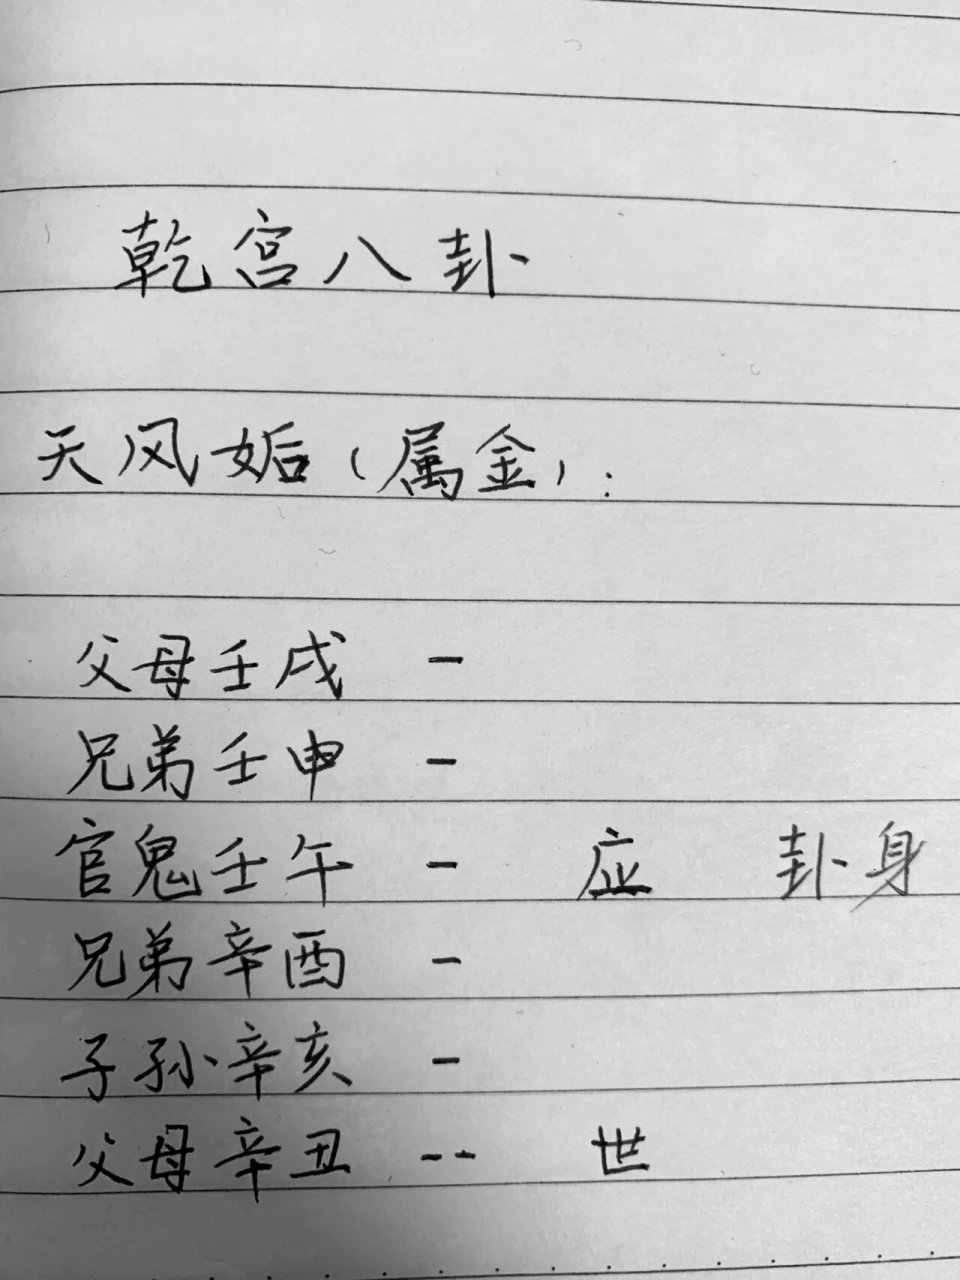 乾宫八卦
天风姤（属金）：
父母壬戌 -
兄弟壬申 -
官鬼壬午 - 应 卦身
兄弟辛酉 -
子孙辛亥 -
父母辛丑 -- 世